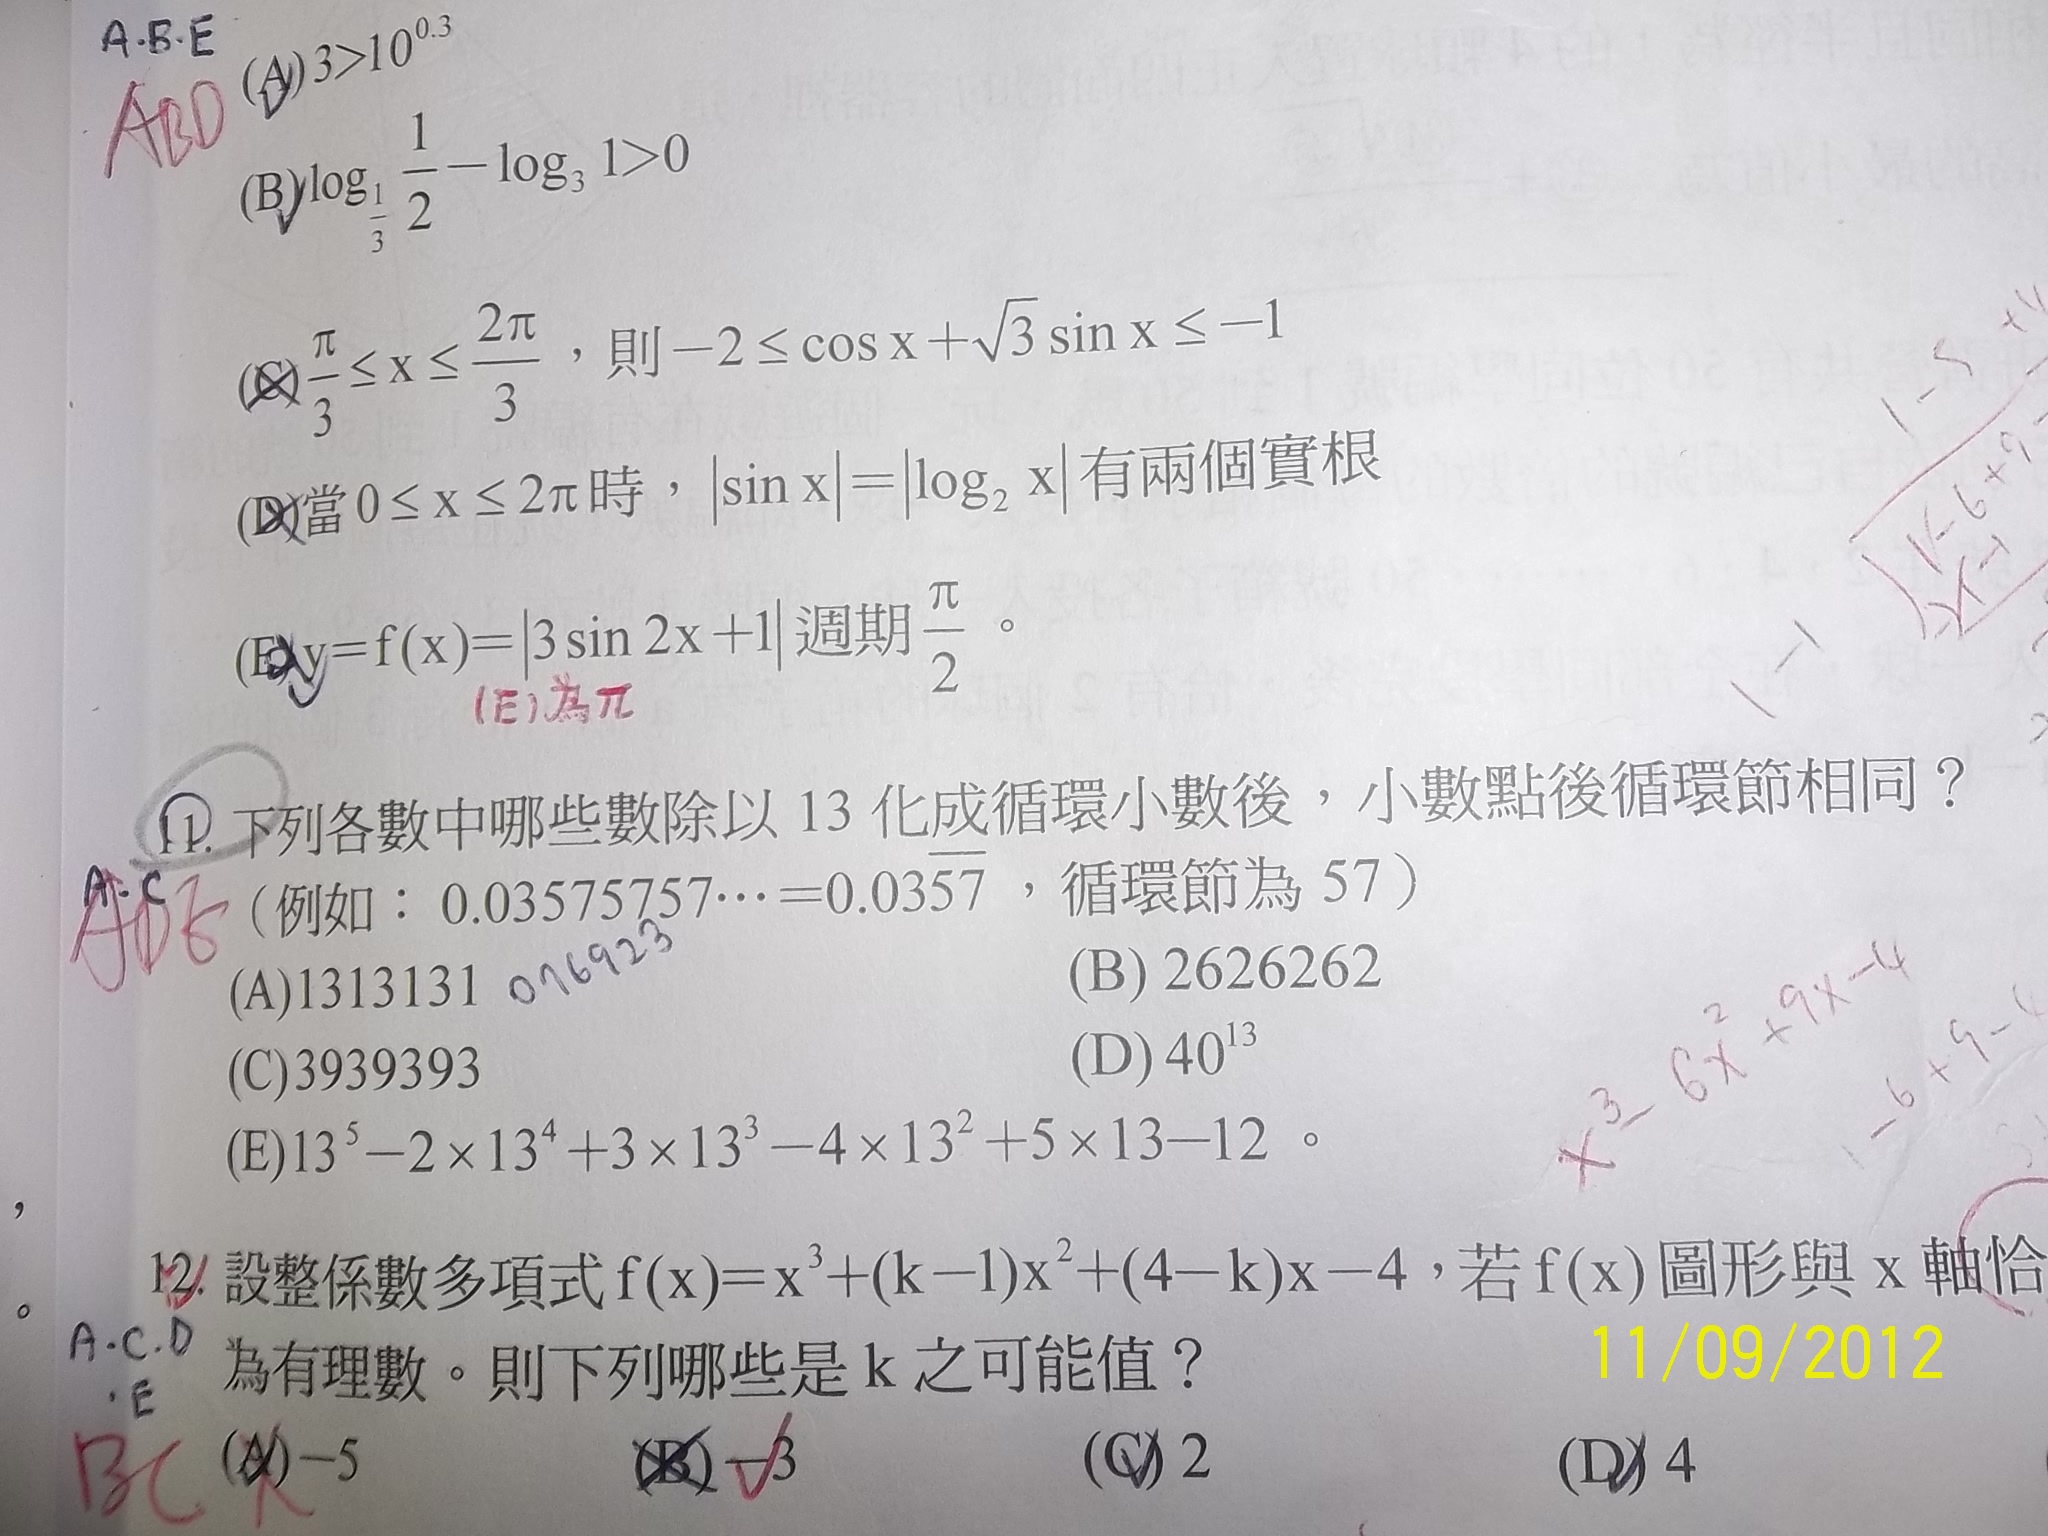 A.B.E
ABD
(A) 3>10^0.3
(B) log_{1/3} 1/2 − log_3 1>0
(C) π/3 ≤ x ≤ 2π/3，則 −2 ≤ cos x + √3 sin x ≤ −1
(D) 當 0 ≤ x ≤ 2π 時，|sin x|=|log_2 x| 有兩個實根
(E) y=f(x)=|3 sin 2x+1| 週期 π/2 。
(E)為π
11. 下列各數中哪些數除以 13 化成循環小數後，小數點後循環節相同？
A.C
ADE
（例如： 0.03575757⋯=0.03\overline{57} ，循環節為 57）
(A)1313131 076923 (B) 2626262
(C)3939393 (D) 40^13
(E)13^5−2×13^4+3×13^3−4×13^2+5×13−12 。
x^3-6x^2+9x-4
12. 設整係數多項式 f(x)=x^3+(k−1)x^2+(4−k)x−4，若 f(x) 圖形與 x 軸恰
為有理數。則下列哪些是 k 之可能值？
A.C.D
.E
BC
(A) −5 (B) −3 (C) 2 (D) 4
11/09/2012